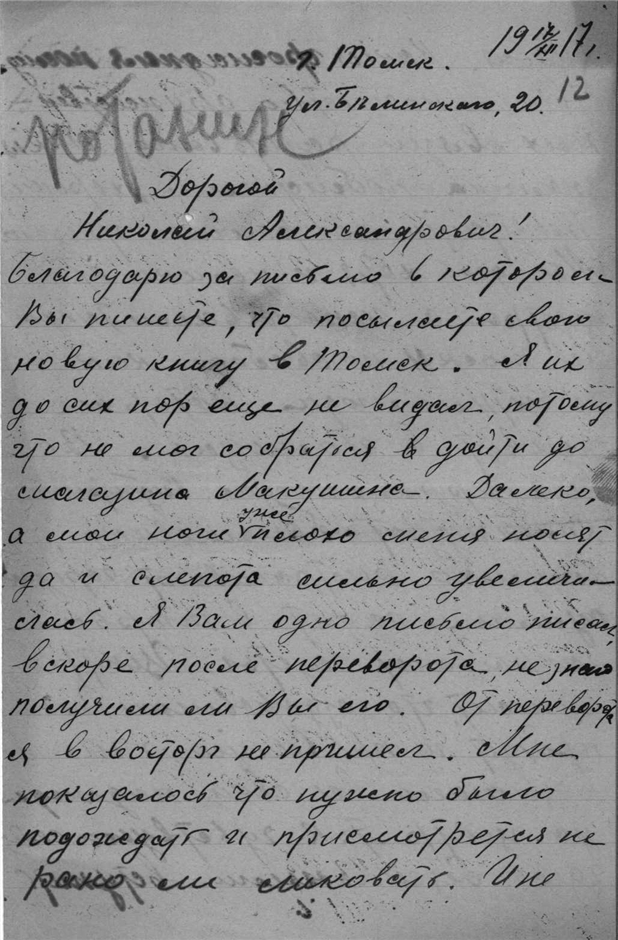 19 17/XII 17 г.
г. Томск.
ул. Бѣлинскаго, 20.
12
Потанин
Дорогой
Николай Александрович!
Благодарю за письмо в котором
Вы пишете, что посылаете свою
новую книгу в Томск. Я их
до сих пор еще не видал, потому
что не мог собраться в дойти до
магазина Макушина. Далеко,
а мои ноги уже плохо меня носят
да и слепота сильно увеличи-
лась. Я Вам одно письмо писал,
вскоре после переворота, не знаю
получили ли Вы его. От переворота
я в восторг не пришел. Мне
показалось что нужно было
подождать и присмотрется не
рано ли ликовать. И не